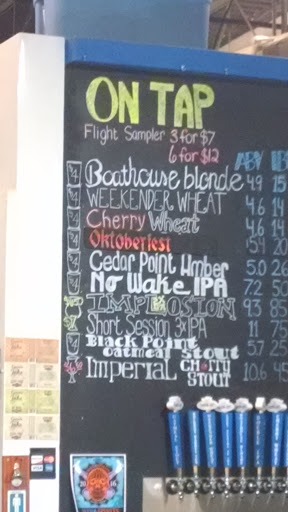 ON TAP
Flight Sampler 3 for $7
6 for $12
ABV IB
Boathouse blonde 4.9 15
WEEKENDER WHEAT 4.6 14
Cherry Wheat 4.6 14
Oktoberfest 5.4 20
Cedar Point Amber 5.0 26
No Wake IPA 7.2 50
IMPLOSION 9.3 85
Short Session 3x IPA 11 75
Black Point
oatmeal Stout 5.7 25
Imperial CHOTTY
STOUT 10.6 45